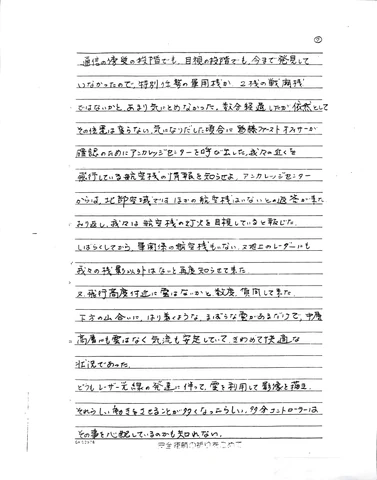 ②
通信の傍受の段階でも、目視の段階でも、今まで発見して
いなかったので、特別任務の軍用機か 2機の戦闘機
ではないかと、あまり気にとめなかった。数分経過したが依然として
その位置は変らない。気になりだした頃合に 勤務ファーストオフィサーが
確認のためにアンカレッジセンターを呼び出した。我々の近くを
飛行している航空機の情報を知らせよ。アンカレッジセンター
からは、北部空域では ほかの航空機はいないとの返答がまた
あり返し、我々は航空機の灯火を目視していると転じた。
しばらくしてから、軍関係の航空機もいない、又地上のレーダーにも
我々の機影以外はないと再度知らせて来た。
又、飛行高度付近に雲はないかと 数度、質問して来た。
下方の山合いに、はり着くような、まばらな雲があるだけで、中層
高層にも雲はなく 気流も安定していて、きわめて快適な
状況であった。
どうもレーザー光線の発達に伴って、雲を利用して影像を描き
それらしい動きをさせることが多くなったらしい。多分コントローラーは
その事を心配しているのかも知れない。